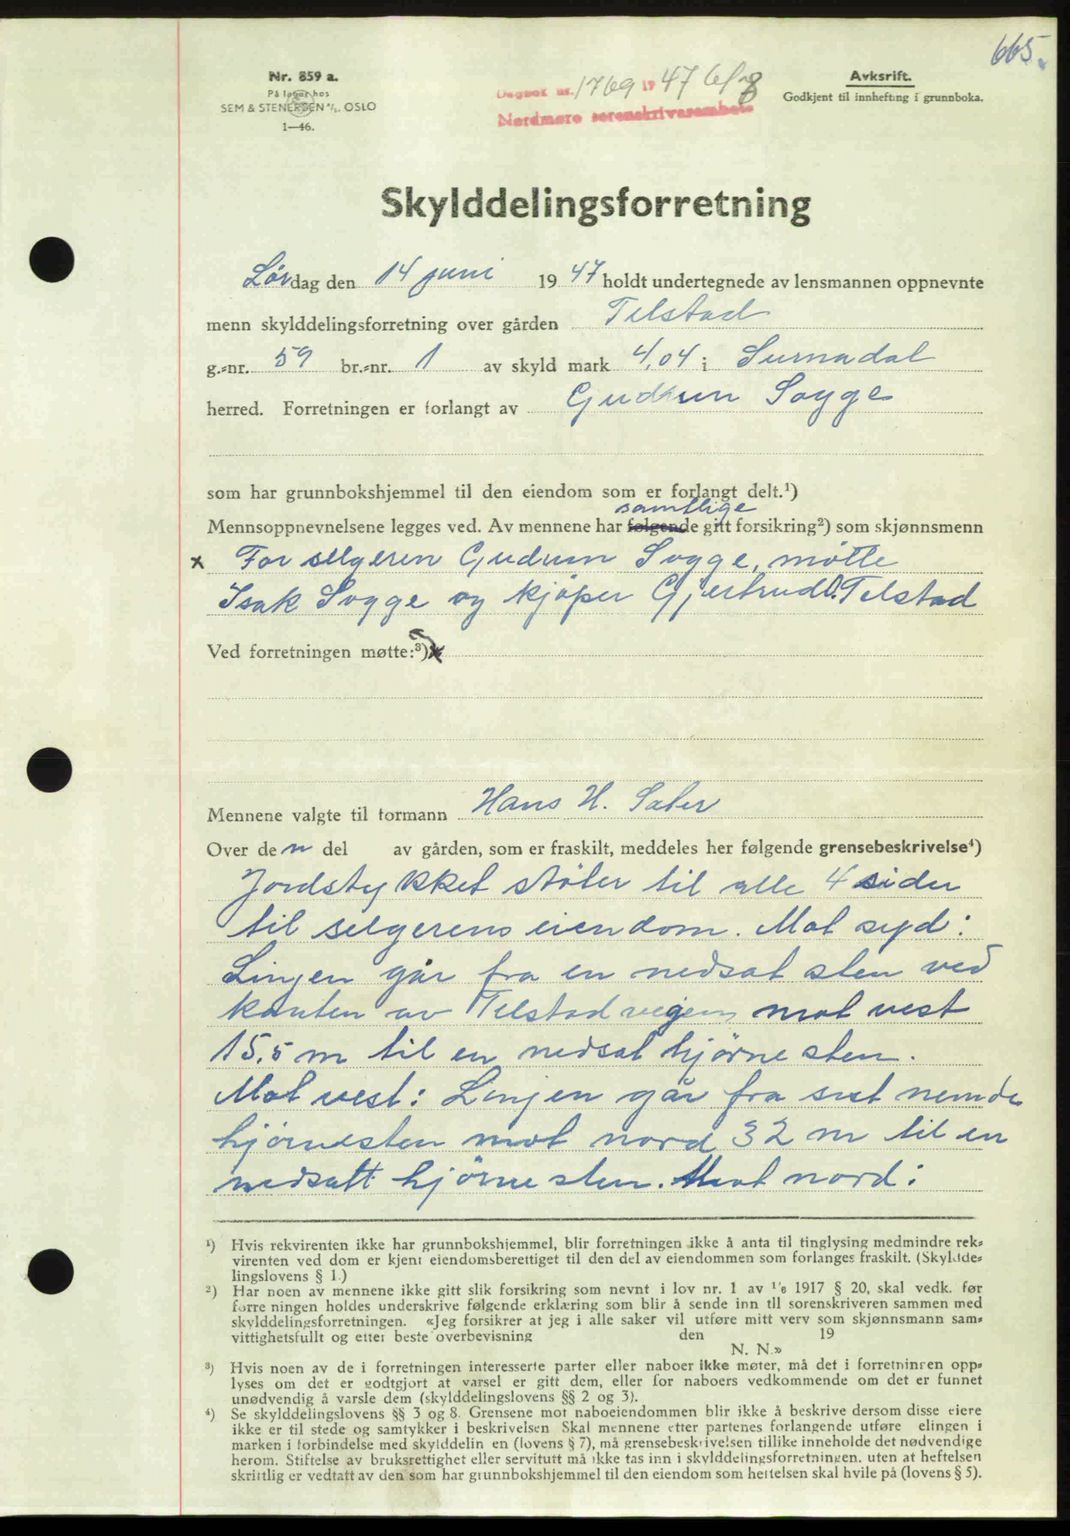 665.
Nr. 859 a.
På lager hos
SEM & STENERSEN A/S. OSLO
1—46.
Dagbok nr. 1769 19 47 6/
Nordmøre sorenskriverembete
Avksrift.
Godkjent til innhefting i grunnboka.
Skylddelingsforretning
Lørdag den 14 juni 1947 holdt undertegnede av lensmannen oppnevnte
menn skylddelingsforretning over gården Telstad
g.-nr. 59 br.-nr. 1 av skyld mark 4,04 i Surnadal
herred. Forretningen er forlangt av Gudrun Sogge
som har grunnbokshjemmel til den eiendom som er forlangt delt.¹)
samtlige
Mennsoppnevnelsene legges ved. Av mennene har følgende gitt forsikring²) som skjønnsmenn
x For selgeren Gudrun Sogge, møtte
Isak Sogge og kjøper Gjertrud O. Telstad
Ved forretningen møtte:³) x
Mennene valgte til formann Hans H. Sæter
Over den del av gården, som er fraskilt, meddeles her følgende grensebeskrivelse⁴)
Jordstykket støter til alle 4 sider
til selgerens eiendom. Mot syd:
Linjen går fra en nedsat sten ved
kanten av Telstadvegen mot vest
15,5 m til en nedsat hjørnesten.
Mot vest: Linjen går fra sist nemde
hjørnesten mot nord 32 m til en
nedsatt hjørnesten. Mot nord:
¹) Hvis rekvirenten ikke har grunnbokshjemmel, blir forretningen ikke å anta til tinglysing medmindre rek-
virenten ved dom er kjent eiendomsberettiget til den del av eiendommen som forlanges fraskilt. (Skyldde-
lingslovens § 1.)
²) Har noen av mennene ikke gitt slik forsikring som nevnt i lov nr. 1 av 1/6 1917 § 20, skal vedk. før
forre ningen holdes underskrive følgende erklæring som blir å sende inn til sorenskriveren sammen med
skylddelingsforretningen. «Jeg forsikrer at jeg i alle saker vil utføre mitt verv som skjønnsmann sam-
vittighetsfullt og etter beste overbevisning den 19
N. N.»
³) Hvis noen av de i forretningen interesserte parter eller naboer ikke møter, må det i forretningen opp-
lyses om det er godtgjort at varsel er gitt dem, eller for naboers vedkommende om det er funnet
unødvendig å varsle dem (skylddelingslovens §§ 2 og 3).
⁴) Se skylddelingslovens §§ 3 og 8. Grensene mot naboeiendommen blir ikke å beskrive dersom disse eiere
ikke er til stede og samtykker i beskrivelsen Skal mennene etter partenes forlangende utføre elingen i
marken i forbindelse med skylddelin en (lovens § 7), må grensebeskrivelsen tillike inneholde det nødvendige
herom. Stiftelse av bruksrettighet eller servitutt må ikke tas inn i skylddelingsforretningen, uten at heftelsen
skriftlig er vedtatt av den som har grunnbokshjemmel til den eiendom som heftelsen skal hvile på (lovens § 5).